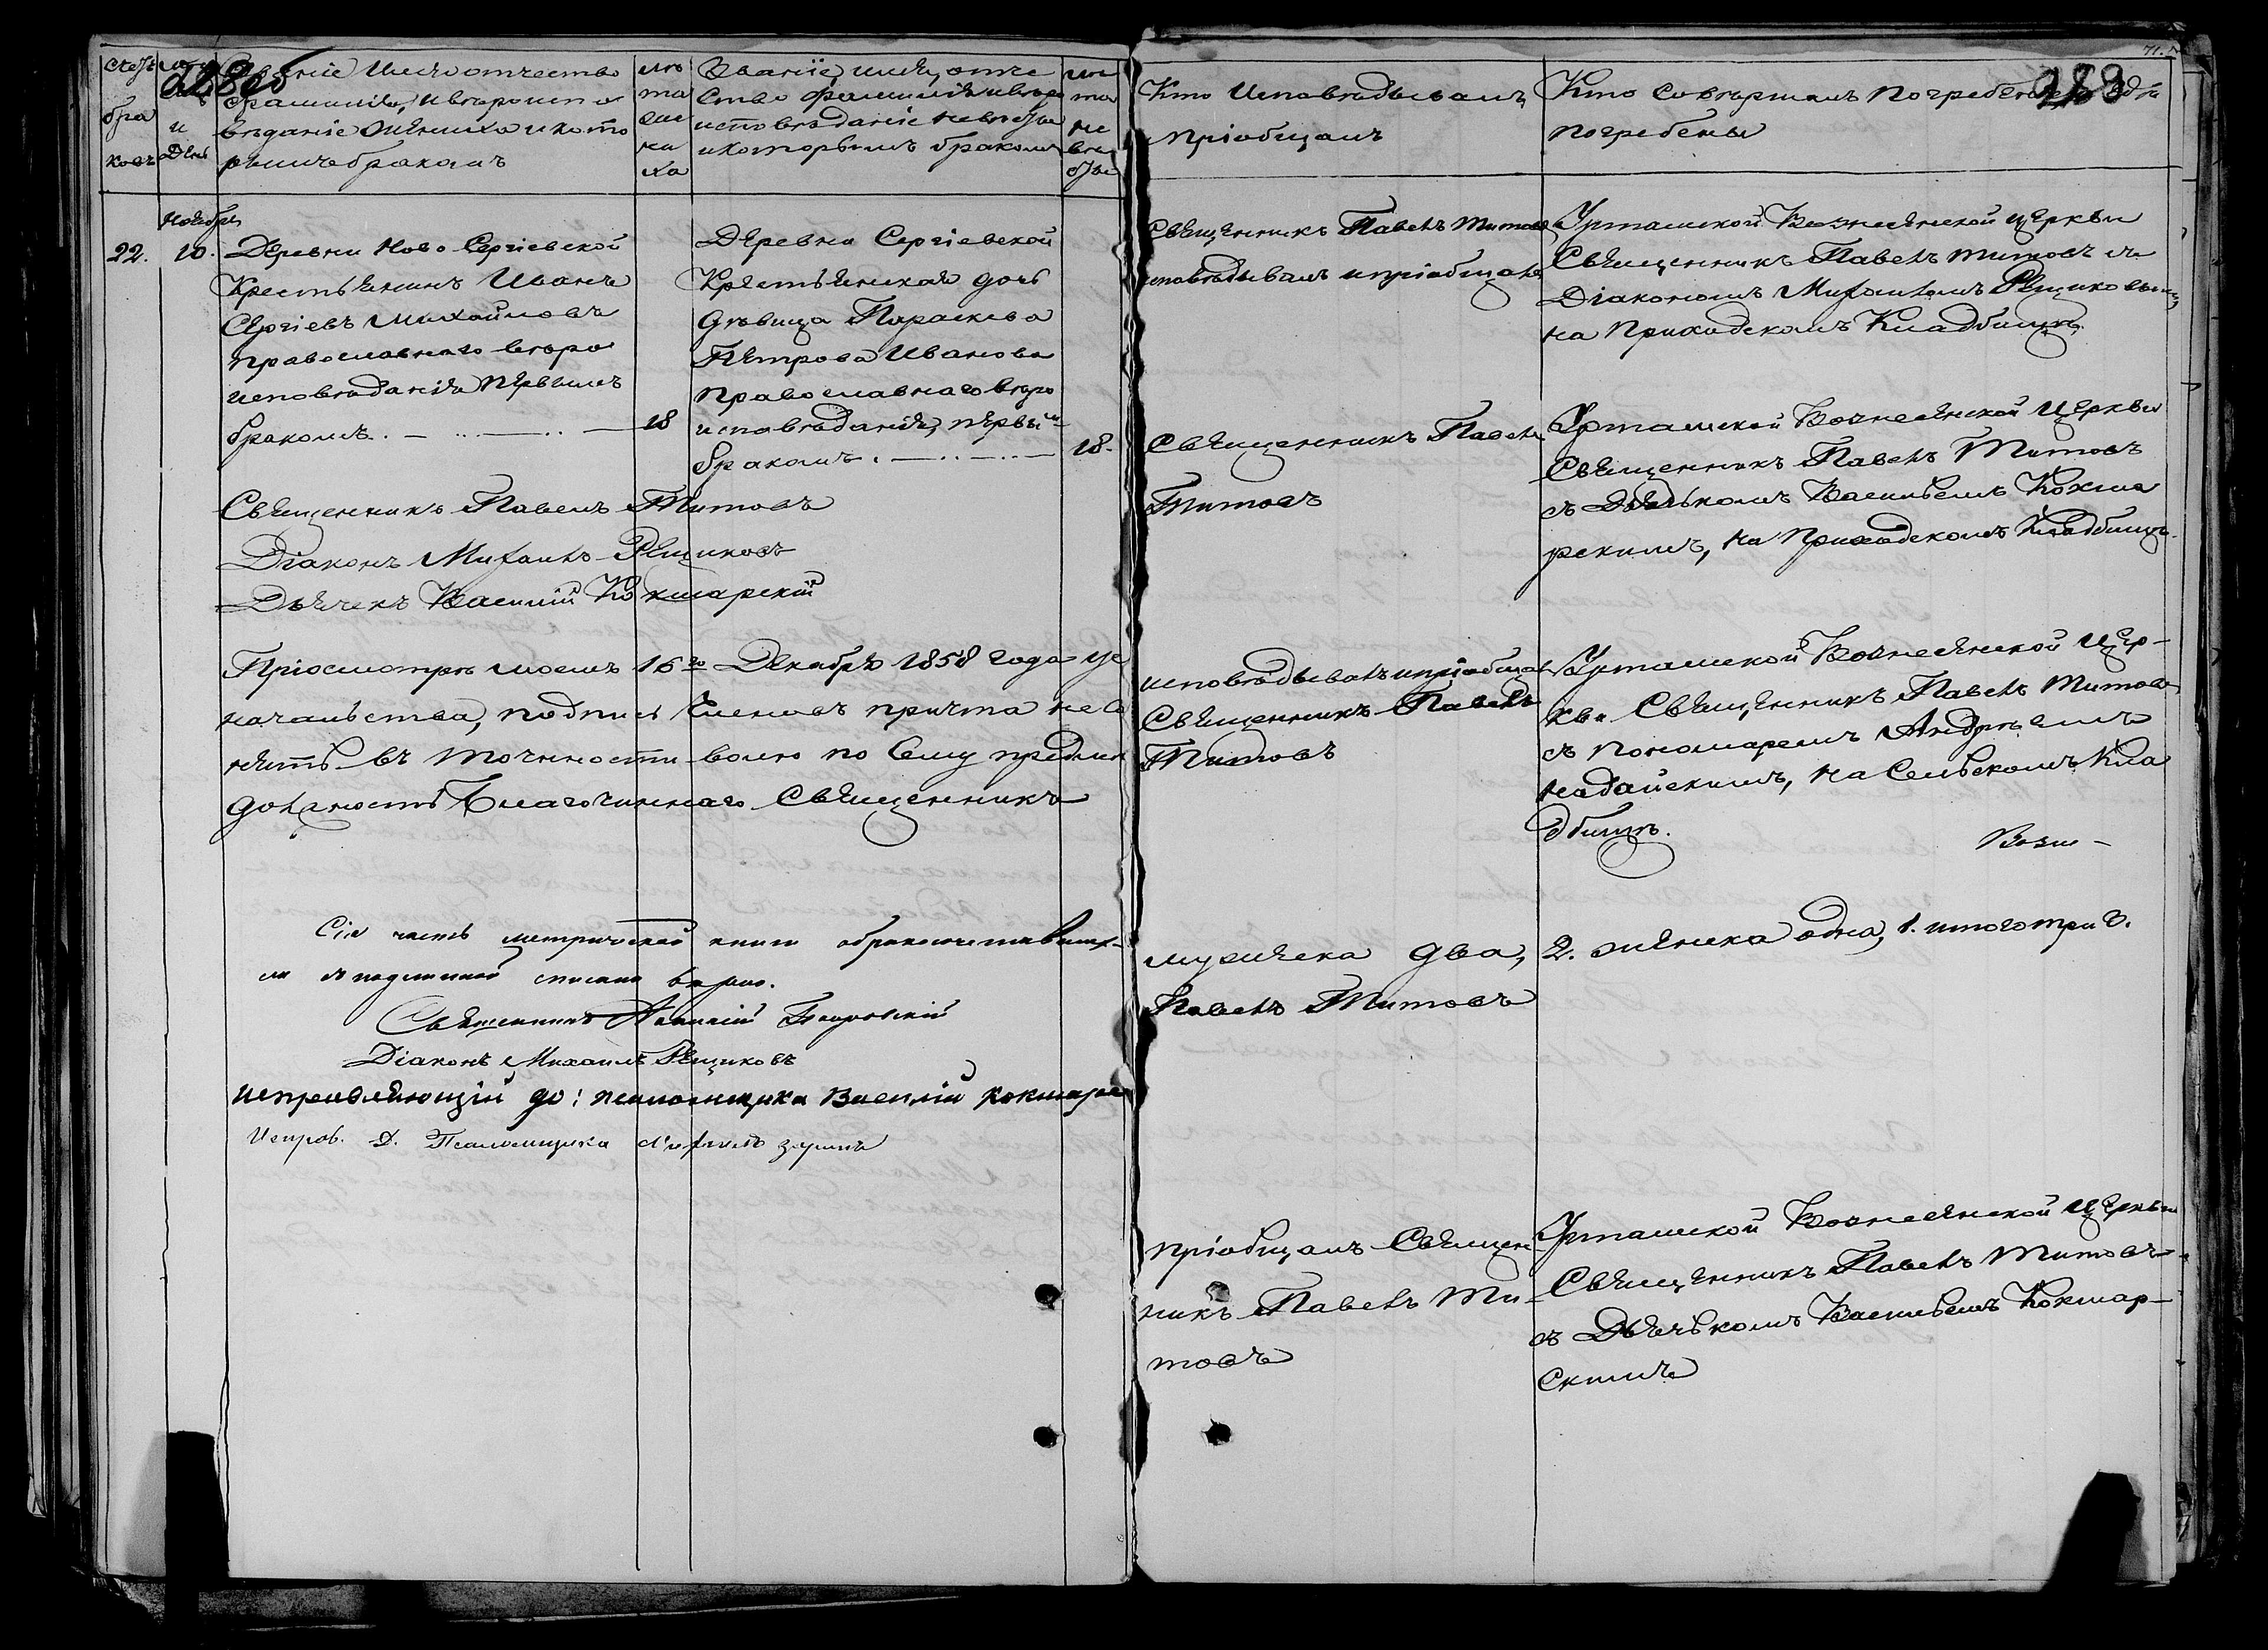 Счетъ
бра
ковъ
и
День
228 об
Званіе Имя отчество
фамилія, и вѣроиспо
вѣданіе жениха и кото
рымъ бракомъ
лѣ
та
же
ни
ха
Званіе, имя, отче
ство фамилія и вѣро
исповѣданіе невѣсты
и которымъ бракомъ
лѣ
та
не
вѣ
сты
22.
Ноября
10.
Деревни Ново Сергіевской
Крестьянинъ Иванъ
Сергіевъ Михайловъ
православнаго вѣро
исповѣданія первымъ
бракомъ.
18
Деревни Сергіевской
Крестьянская дочь
дѣвица Параскева
Петрова Иванова
православнаго вѣро
исповѣданія, первым
бракомъ.
18.
Священникъ Павелъ Титовъ
Діаконъ Михаилъ Рещиковъ
Дьячекъ Василій Кокшарскій
При осмотрѣ моемъ 16го Декабря 1858 года
начальства, подписи Членовъ причта
въ точности по сему
должность Благочиннаго Священникъ
Сія часть метрической книги о бракосочетавших-
ся съ подлинной списана вѣрно.
Священникъ
Діаконъ Михаилъ Рещиковъ
Исправляющій до: псаломщика Василій Кокшарс
Исправ. Д. Псаломщика
71.
Кто Исповѣдывалъ
пріобщалъ
Кто Совершалъ погребеніе и гдѣ
погребены
Священникъ Павелъ Титовъ
исповѣдывалъ и пріобщалъ
Урташской Вознесенской церкви
Священникъ Павелъ Титовъ съ
Діакономъ Михаиломъ Рещиковымъ,
на Приходскомъ Кладбищѣ.
Священникъ Павелъ
Титовъ
Урташской Вознесенской Церкви
Священникъ Павелъ Титовъ
съ Дьячькомъ Васильемъ Кокша
рскимъ, на Приходскомъ Кладбищѣ.
исповѣдывалъ и пріобщалъ
Священникъ Павелъ
Титовъ
Урташской Вознесенской Цер-
кви Священникъ Павелъ Титовъ
съ пономаремъ Андреемъ
Надайскимъ, на Сельскомъ Кла
дбищѣ.
мужеска два, 2. женска одна, 1. итого три 3.
Павелъ Титовъ
пріобщалъ Священ-
никъ Павелъ Ти-
товъ
Урташской Вознесенской Церкви
Священникъ Павелъ Титовъ
съ Дьячькомъ Васильемъ Кокшар-
скимъ